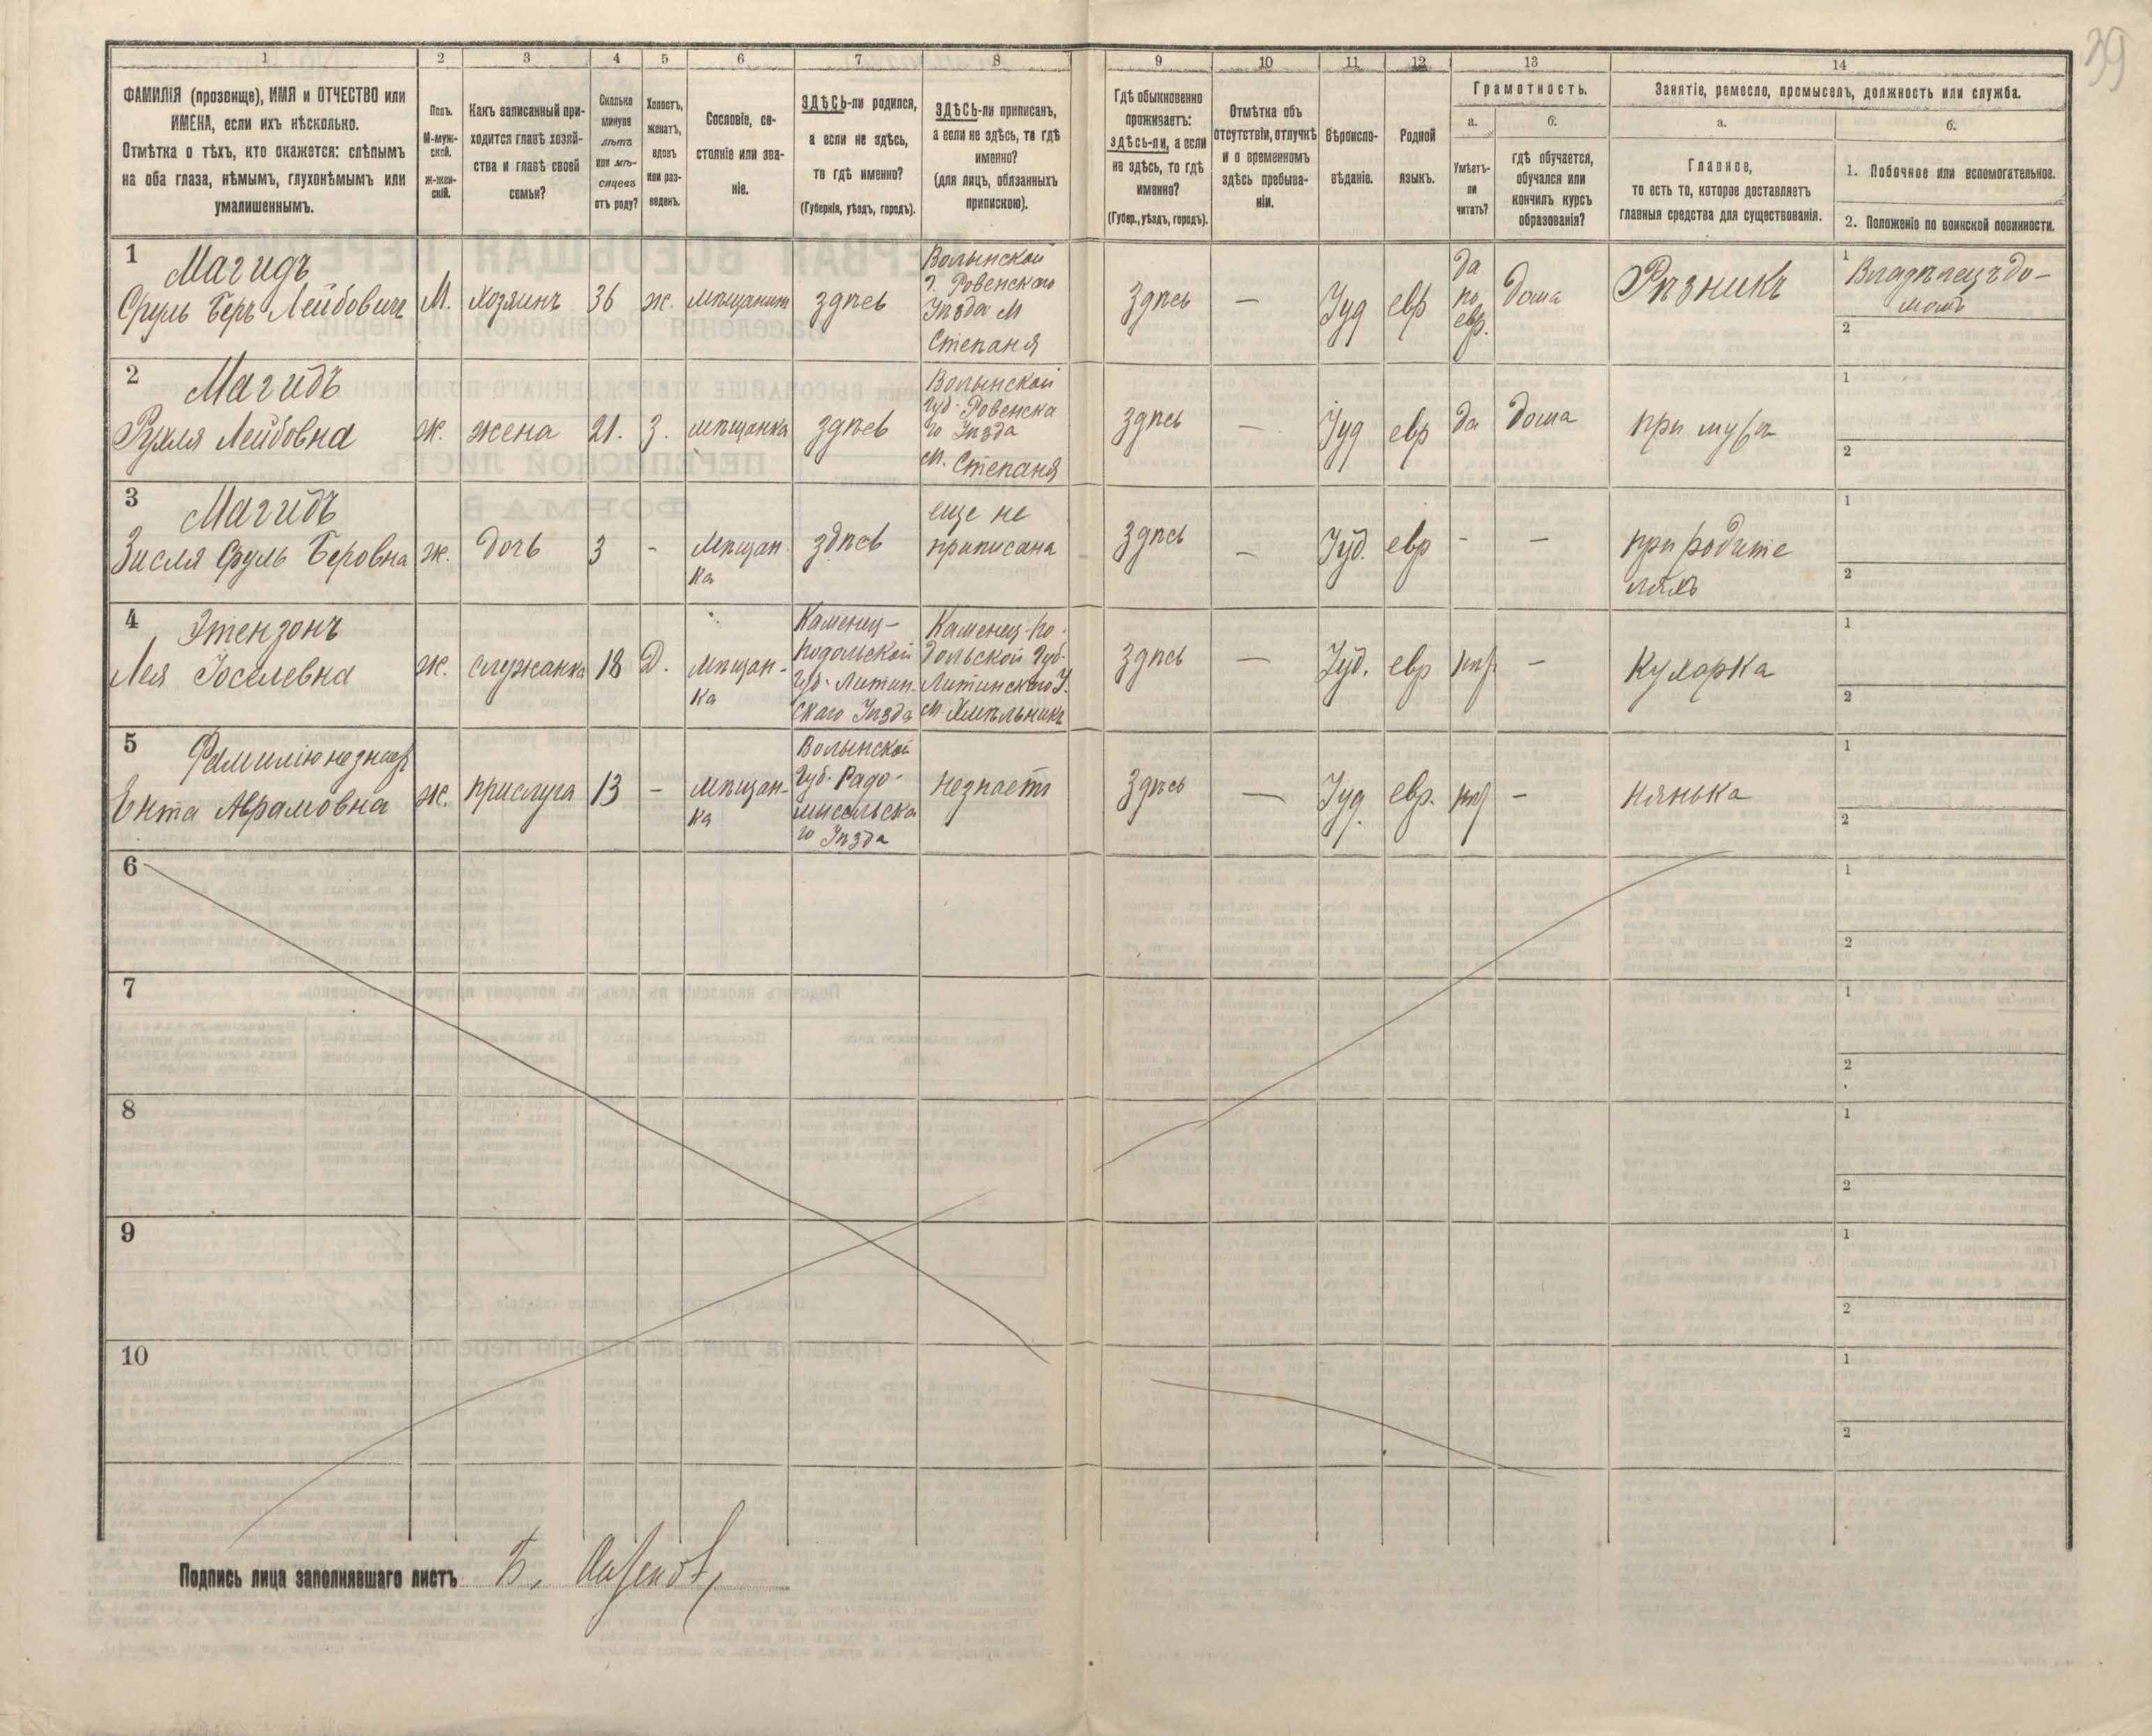 39
1 2 3 4 5 6 7 8 9 10 11 12 13 14
ФАМИЛІЯ (прозвище), ИМЯ и ОТЧЕСТВО или
ИМЕНА, если ихъ нѣсколько.
Отмѣтка о тѣхъ, кто окажется: слѣпымъ
на оба глаза, нѣмымъ, глухонѣмымъ или
умалишеннымъ.
Полъ.
М-муж-
ской.
ж-жен-
скій.
Какъ записанный при-
ходится главѣ хозяй-
ства и главѣ своей
семьи?
Сколько
минуло
лѣтъ
или мѣ-
сяцевъ
отъ роду?
Холостъ,
женатъ,
вдовъ
или раз-
веденъ.
Сословіе, со-
стояніе или зва-
ніе.
ЗДѢСЬ-ли родился,
а если не здѣсь,
то гдѣ именно?
(Губернія, уѣздъ, городъ).
ЗДѢСЬ-ли приписанъ,
а если не здѣсь, то гдѣ
именно?
(для лицъ, обязанныхъ
припискою).
Гдѣ обыкновенно
проживаетъ:
здѣсь-ли, а если
не здѣсь, то гдѣ
именно?
(Губер., уѣздъ, городъ).
Отмѣтка объ
отсутствіи, отлучкѣ
и о временномъ
здѣсь пребыва-
ніи.
Вѣроиспо-
вѣданіе.
Родной
языкъ.
Грамотность.
а.
Умѣетъ-
ли
читать?
б.
гдѣ обучается,
обучался или
кончилъ курсъ
образованія?
Занятіе, ремесло, промыселъ, должность или служба.
а.
Главное,
то есть то, которое доставляетъ
главныя средства для существованія.
б.
1. Побочное или вспомогательное.
2. Положеніе по воинской повинности.
1
Магидъ
Сруль Беръ Лейбовичъ
М.
хозяинъ
36
ж.
мѣщанинъ
здѣсь
Волынской
г. Ровенскаго
Уѣзда М
Степаня
Здѣсь
—
Іуд
евр
да
по
евр.
дома
Рѣзникъ
1
Владѣлецъ до-
момъ
2
2
Магидъ
Рухля Лейбовна
ж.
жена
21.
З.
мѣщанка
здѣсь
Волынской
Губ. Ровенска
го Уѣзда
М. Степаня
здѣсь
—
Іуд
евр
да
дома
при мужѣ
1
2
3
Магидъ
Зисля Сруль Беровна
ж.
дочь
3
-
Мѣщан
ка
здѣсь
еще не
приписана
Здѣсь
—
Іуд.
евр
-
—
при родите
ляхъ
1
2
4
Этензонъ
Лея Іоселевна
ж.
служанка
18
Д.
мѣщан-
ка
Каменец-
Подольской
Губ. Литин-
скаго Уѣзда
Каменец-По-
дольской Губ.
Литинскаго У.
М. Хмѣльникъ
Здѣсь
—
Іуд.
евр
нѣт
—
Кухарка
1
2
5
Фамилію не знает
Ента Аврамовна
ж.
прислуга
13
-
мѣщан-
ка
Волынской
Губ. Радо-
мысльска
го Уѣзда
незнаетъ
Здѣсь
—
Іуд.
евр.
нѣт
—
нянька
1
2
6
1
2
7
1
2
8
1
2
9
1
2
10
1
2
Подпись лица заполнявшаго листъ Б.